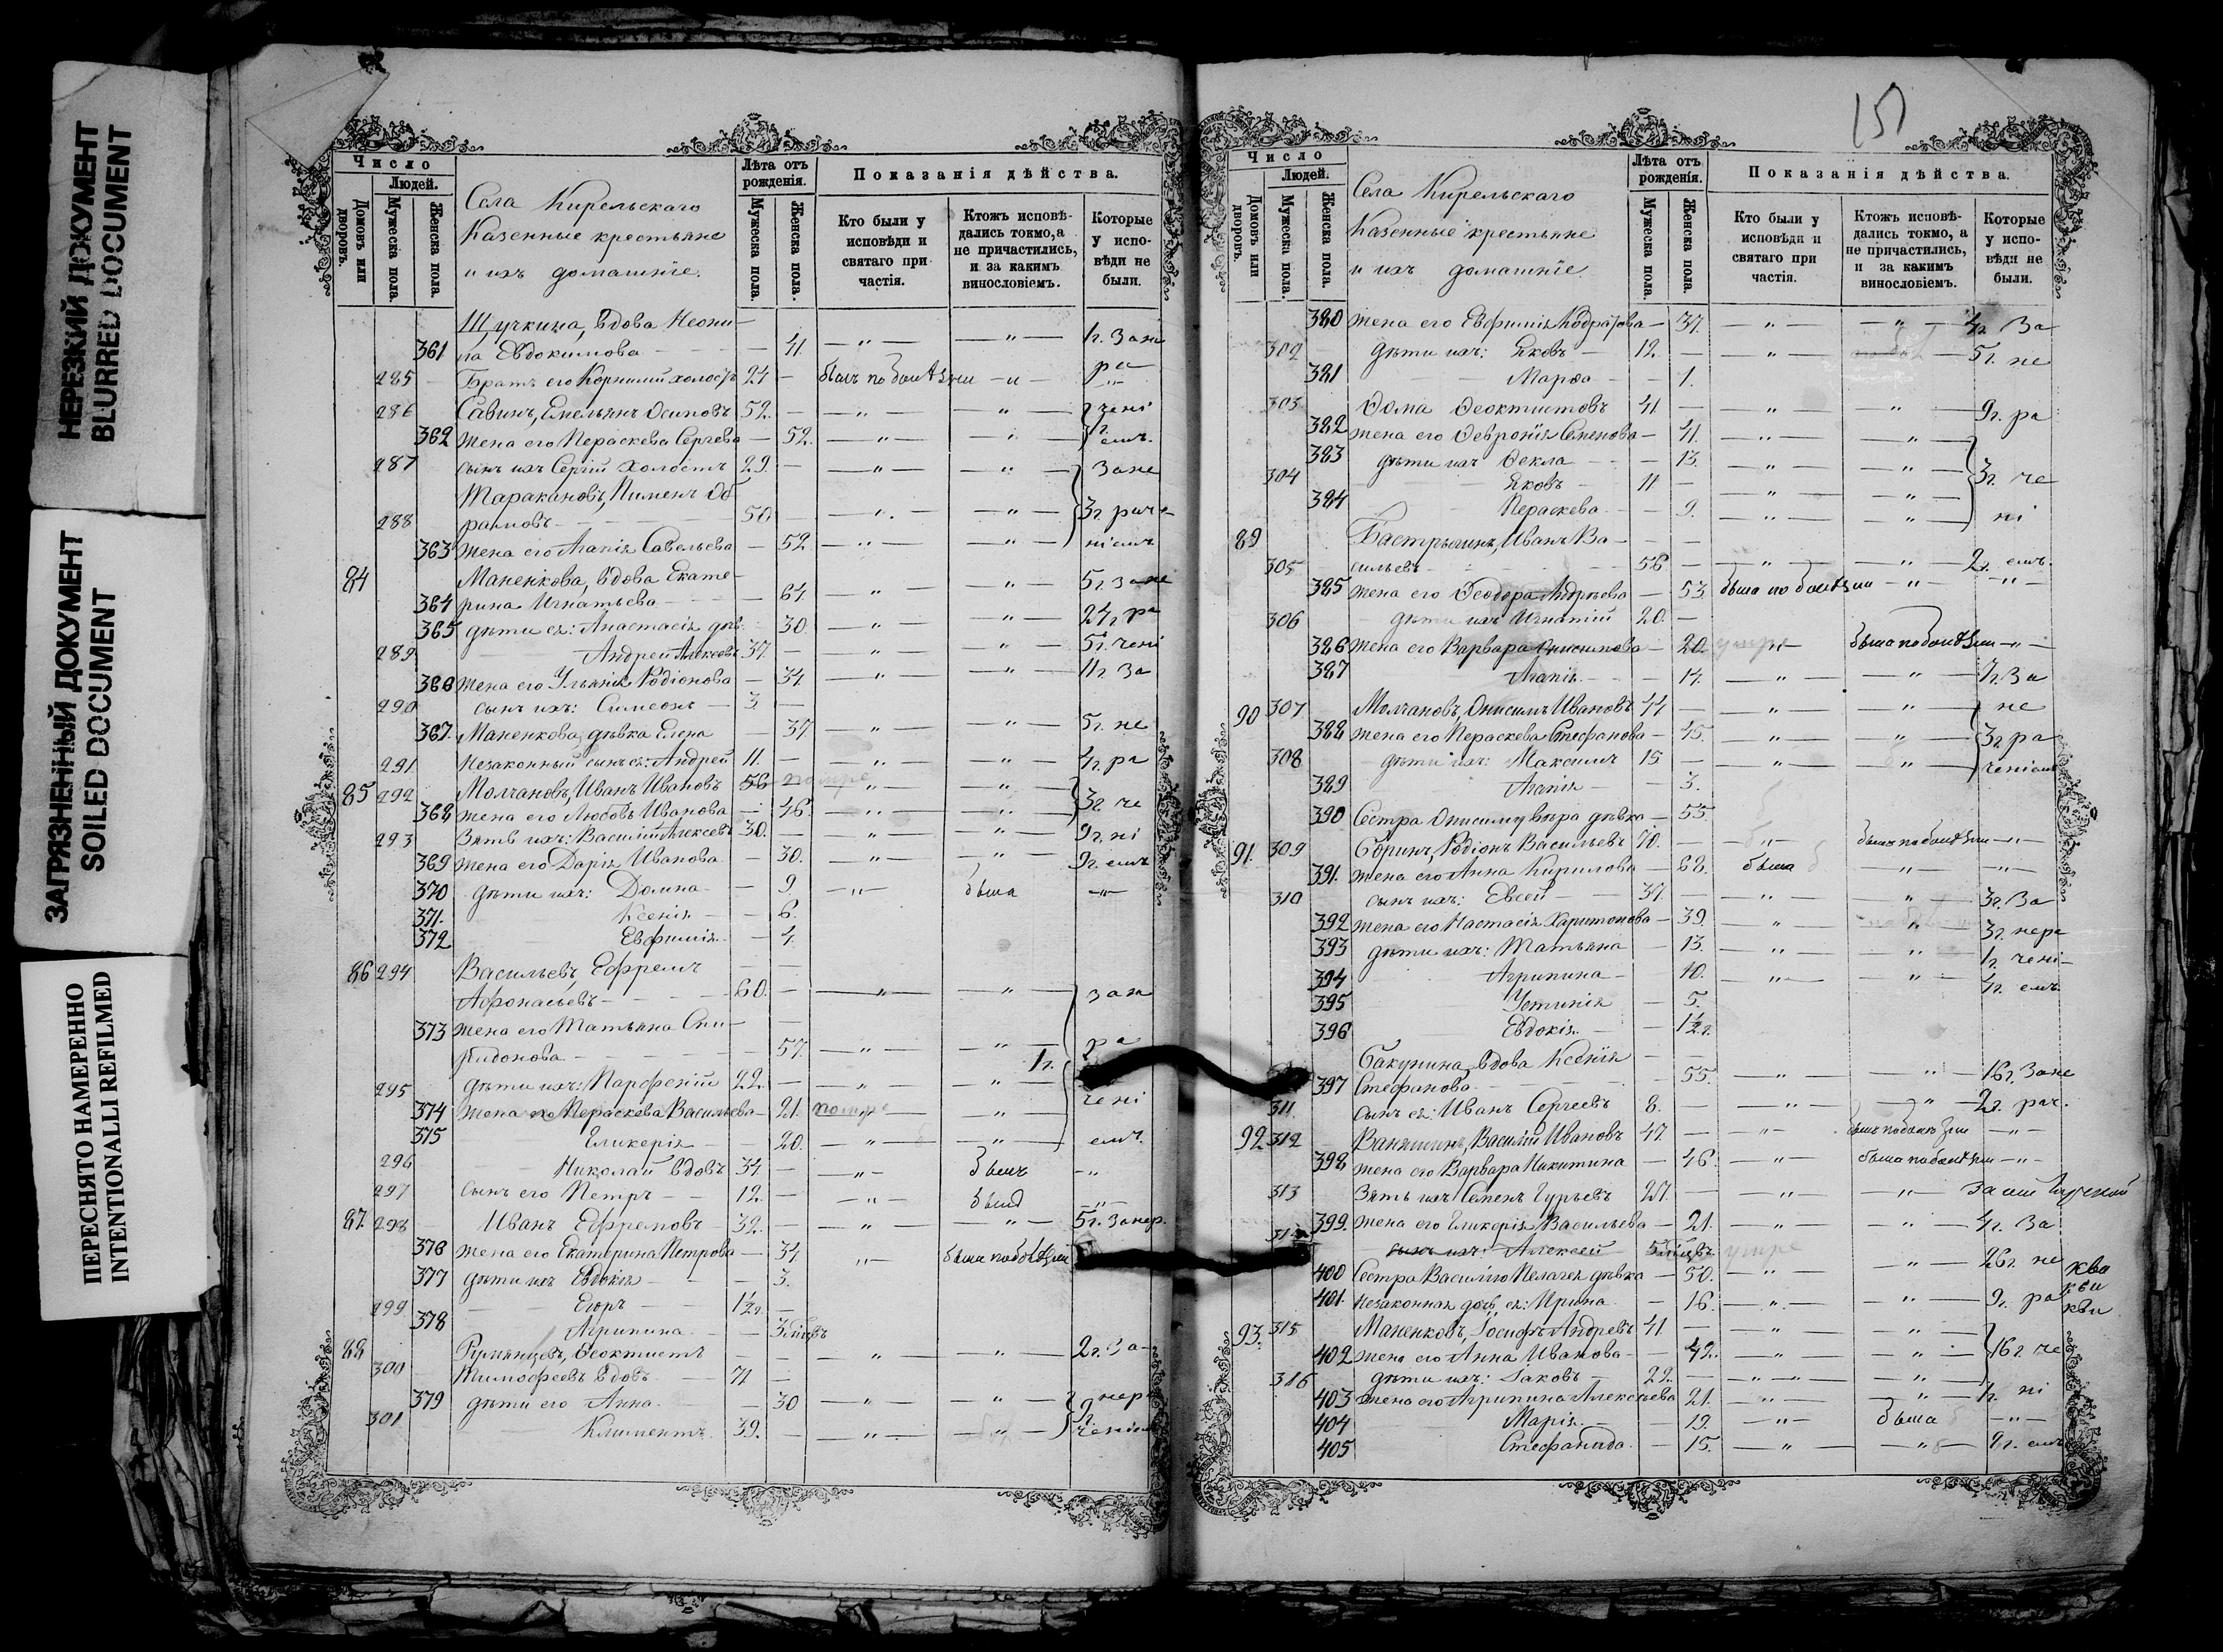 НЕРЕЗКИЙ ДОКУМЕНТ
BLURRED DOCUMENT
ЗАГРЯЗНЕННЫЙ ДОКУМЕНТ
SOILED DOCUMENT
ПЕРЕСНЯТО НАМЕРЕННО
INTENTIONALLI REFILMED
Число
Людей.
Домовъ или дворовъ.
Мужеска пола.
Женска пола.
Села Кирельскаго
Казенные крестьяне
и ихъ домашніе.
Лѣта отъ рожденія.
Мужеска пола.
Женска пола.
Показанія дѣйства.
Кто были у исповѣди и святаго причастія.
Ктожъ исповѣдались токмо, а не причастились, и за какимъ винословіемъ.
Которые у исповѣди не были.
Щучкина, вдова Неони-
361 ла Евдокимова — 41. — „ — — „ — 1г. За н
285 Братъ его Корнилий холостъ 24 — былъ по болѣзни — „ — ра
286 Савинъ, Емельянъ Осиповъ 52. — — „ — „ чені
362 жена его Пераскева Сергѣева — 52. — „ — „ емъ.
287 сынъ ихъ Сергій холостъ 29. — — „ — „ За не
Таракановъ, Пименъ Об
288 рамовъ — 50 — „ — — „ — 3г. раче
363 жена его Агапія Савельева — 52 — „ — — „ — ніемъ
84 Маненкова, вдова Екате-
364 рина Игнатьева — 64 — „ — — „ — 5г. За не
365 дѣти ея: Анастасія дѣв. 30. — „ — — „ — 24г. ра
289 Андрей Алексѣевъ 37. — — „ — — „ — 5г. чені
366 жена его Ульянія Родіонова — 34 — „ — — „ — 11г. За
290 сынъ ихъ: Симеонъ — 3 —
367. Маненкова дѣвка Елена — 34 — „ — — „ — 5г. не
291 Незаконный сынъ ея: Андрей 11. — — „ — — „ — 4г. ра
85 292 Молчановъ, Иванъ Ивановъ 56 помре — „ — — „ —
368 жена его Любовь Иванова — 46. — „ — — „ — 3г. че
293 Зять ихъ: Василій Алексѣевъ 30. — — „ — — „ — 9г. ні
369 жена его Дарія Иванова — 30. — „ — — „ — 9г. емъ
370 дѣти ихъ: Домна — 9. — „ — была — „ —
371. Ксенія — 6.
372 Евфимія — 4.
86 294 Васильевъ, Ефремъ
Афонасьевъ — 60. — — „ — — „ — За н
373 жена его Татьяна Спи-
ридонова — 57. — „ — — „ — 1г. ра
295 дѣти ихъ: Парфеній 22. — — „ — — „ —
374 жена его Пераскева Васильева — 21. помре — „ — — „ — чені
375 Гликерія — 20. — „ — — „ — емъ.
296 Николай вдовъ 34 — — „ — былъ — „
297 сынъ его Петръ — 12. — — „ — былъ — „ —
87. 298 Иванъ Ефремовъ — 32. — — „ — — „ — 5г. За нер.
376 жена его Екатерина Петрова — 34 — „ — была по болѣзни
377 дѣти ихъ Евдокія — 3.
299 Егоръ — 1½г. —
378 Агрипина
88 Румянцевъ, Ѳеоктистъ — — „ — — „ — 2г. За-
300 Тимофеевъ вдовъ 71 —
379 дѣти его Анна — 30 — „ — — „ — нера
301 Климентъ 39. — — „ — — „ — ченіи
Число
Людей.
Домовъ или дворовъ.
Мужеска пола.
Женска пола.
Села Кирельскаго
Казенные крестьяне
и ихъ домашніе
Лѣта отъ рожденія.
Мужеска пола.
Женска пола.
Показанія дѣйства.
Кто были у исповѣди и святаго причастія.
Ктожъ исповѣдались токмо, а не причастились, и за какимъ винословіемъ.
Которые у исповѣди не были.
380 жена его Евфимія Кодратова — 37. — „ — — „ — 4г. За
302 дѣти ихъ: Яковъ — 12. — — „ — 5г. не
381 Марѳа — 1.
303 Ѳома Ѳеоктистовъ 41 — — „ — — „ — 9г. ра
382 жена его Ѳевронія Семенова — 41. — „ — — „ —
383 дѣти ихъ Ѳекла — 13. — „ — — „ —
304 Яковъ 11 — — „ — — „ — 3г. че
384 Пераскева — 9. — „ — — „ — ні
89 Бастрыгинъ, Иванъ Ва-
305 сильевъ — 56 — — „ — — „ — 2г. емъ.
385 жена его Ѳеодора Андрѣева — 53. была по болѣзни — „ — — „ —
306 дѣти ихъ Игнатій 20. —
386 жена его Варвара Онисимова — 20. умре была по болѣзни — „ —
387 Агапія — 14. — „ — — „ — 1г. За
90 307 Молчановъ, Онисимъ Ивановъ 44 — — „ — — „ — не
388 жена его Пераскева Стефанова — 45. — „ — — „ — 3г. ра
308 дѣти ихъ: Максимъ 15 — — „ — — „ — ченіемъ
389 Агапія — 3.
390 Сестра Онисиму Вѣра дѣвка — 55.
91. 309 Сбринъ, Родіонъ Васильевъ 70. — — „ — была по болѣзни — „ —
391. жена его Анна Кирилова — 68. была — „ — — „ —
310 сынъ ихъ: Евсей — 37. — — „ — — „ — 3г. За
392 жена его Настасія Харитонова — 39. — „ — — „ — 3г. нера
393 дѣти ихъ: Татьяна — 13. — „ — — „ — 1г. чені-
394 Агрипина — 10. — „ — — „ — 4г. емъ
395 Устинія — 5.
396 Евдокія — 1½г.
Бакунина, вдова Ксенія
397 Стефанова — 55. — „ — — „ — 16г. За не
311. сынъ ея: Иванъ Сергеевъ 8. — — „ — — „ — 2г. рач.
92 312 Ваняшинъ, Василій Ивановъ 47. — — „ — былъ по болѣзни — „ —
398 жена его Варвара Никитина — 46. — „ — была по болѣзни — „ —
313 Зять ихъ Семенъ Гурьевъ 27. — — „ — — „ —
399. жена его Гликерія Васильева — 21. — „ — — „ — 4г. За
сынъ ихъ: Алексей умре
400 Сестра Василію Пелагея дѣвка — 50. — „ — — „ — 26г. не
401. Незаконная дочь ея: Ирина — 16. — „ — — „ — 9г. ра
93. 315 Маненковъ, Іосифъ Андреевъ 41. — — „ — — „ —
402 жена его Анна Иванова — 42. — „ — — „ — 16г. че
316 дѣти ихъ: Іаковъ — 22. — — „ — — „ —
403 жена его Агрипина Алексѣева 21. — „ — — „ — 1г. ні
404 Марія — 19. — „ — была — „ —
405 Стефанида — 15. — „ — — „ — 2г. емъ